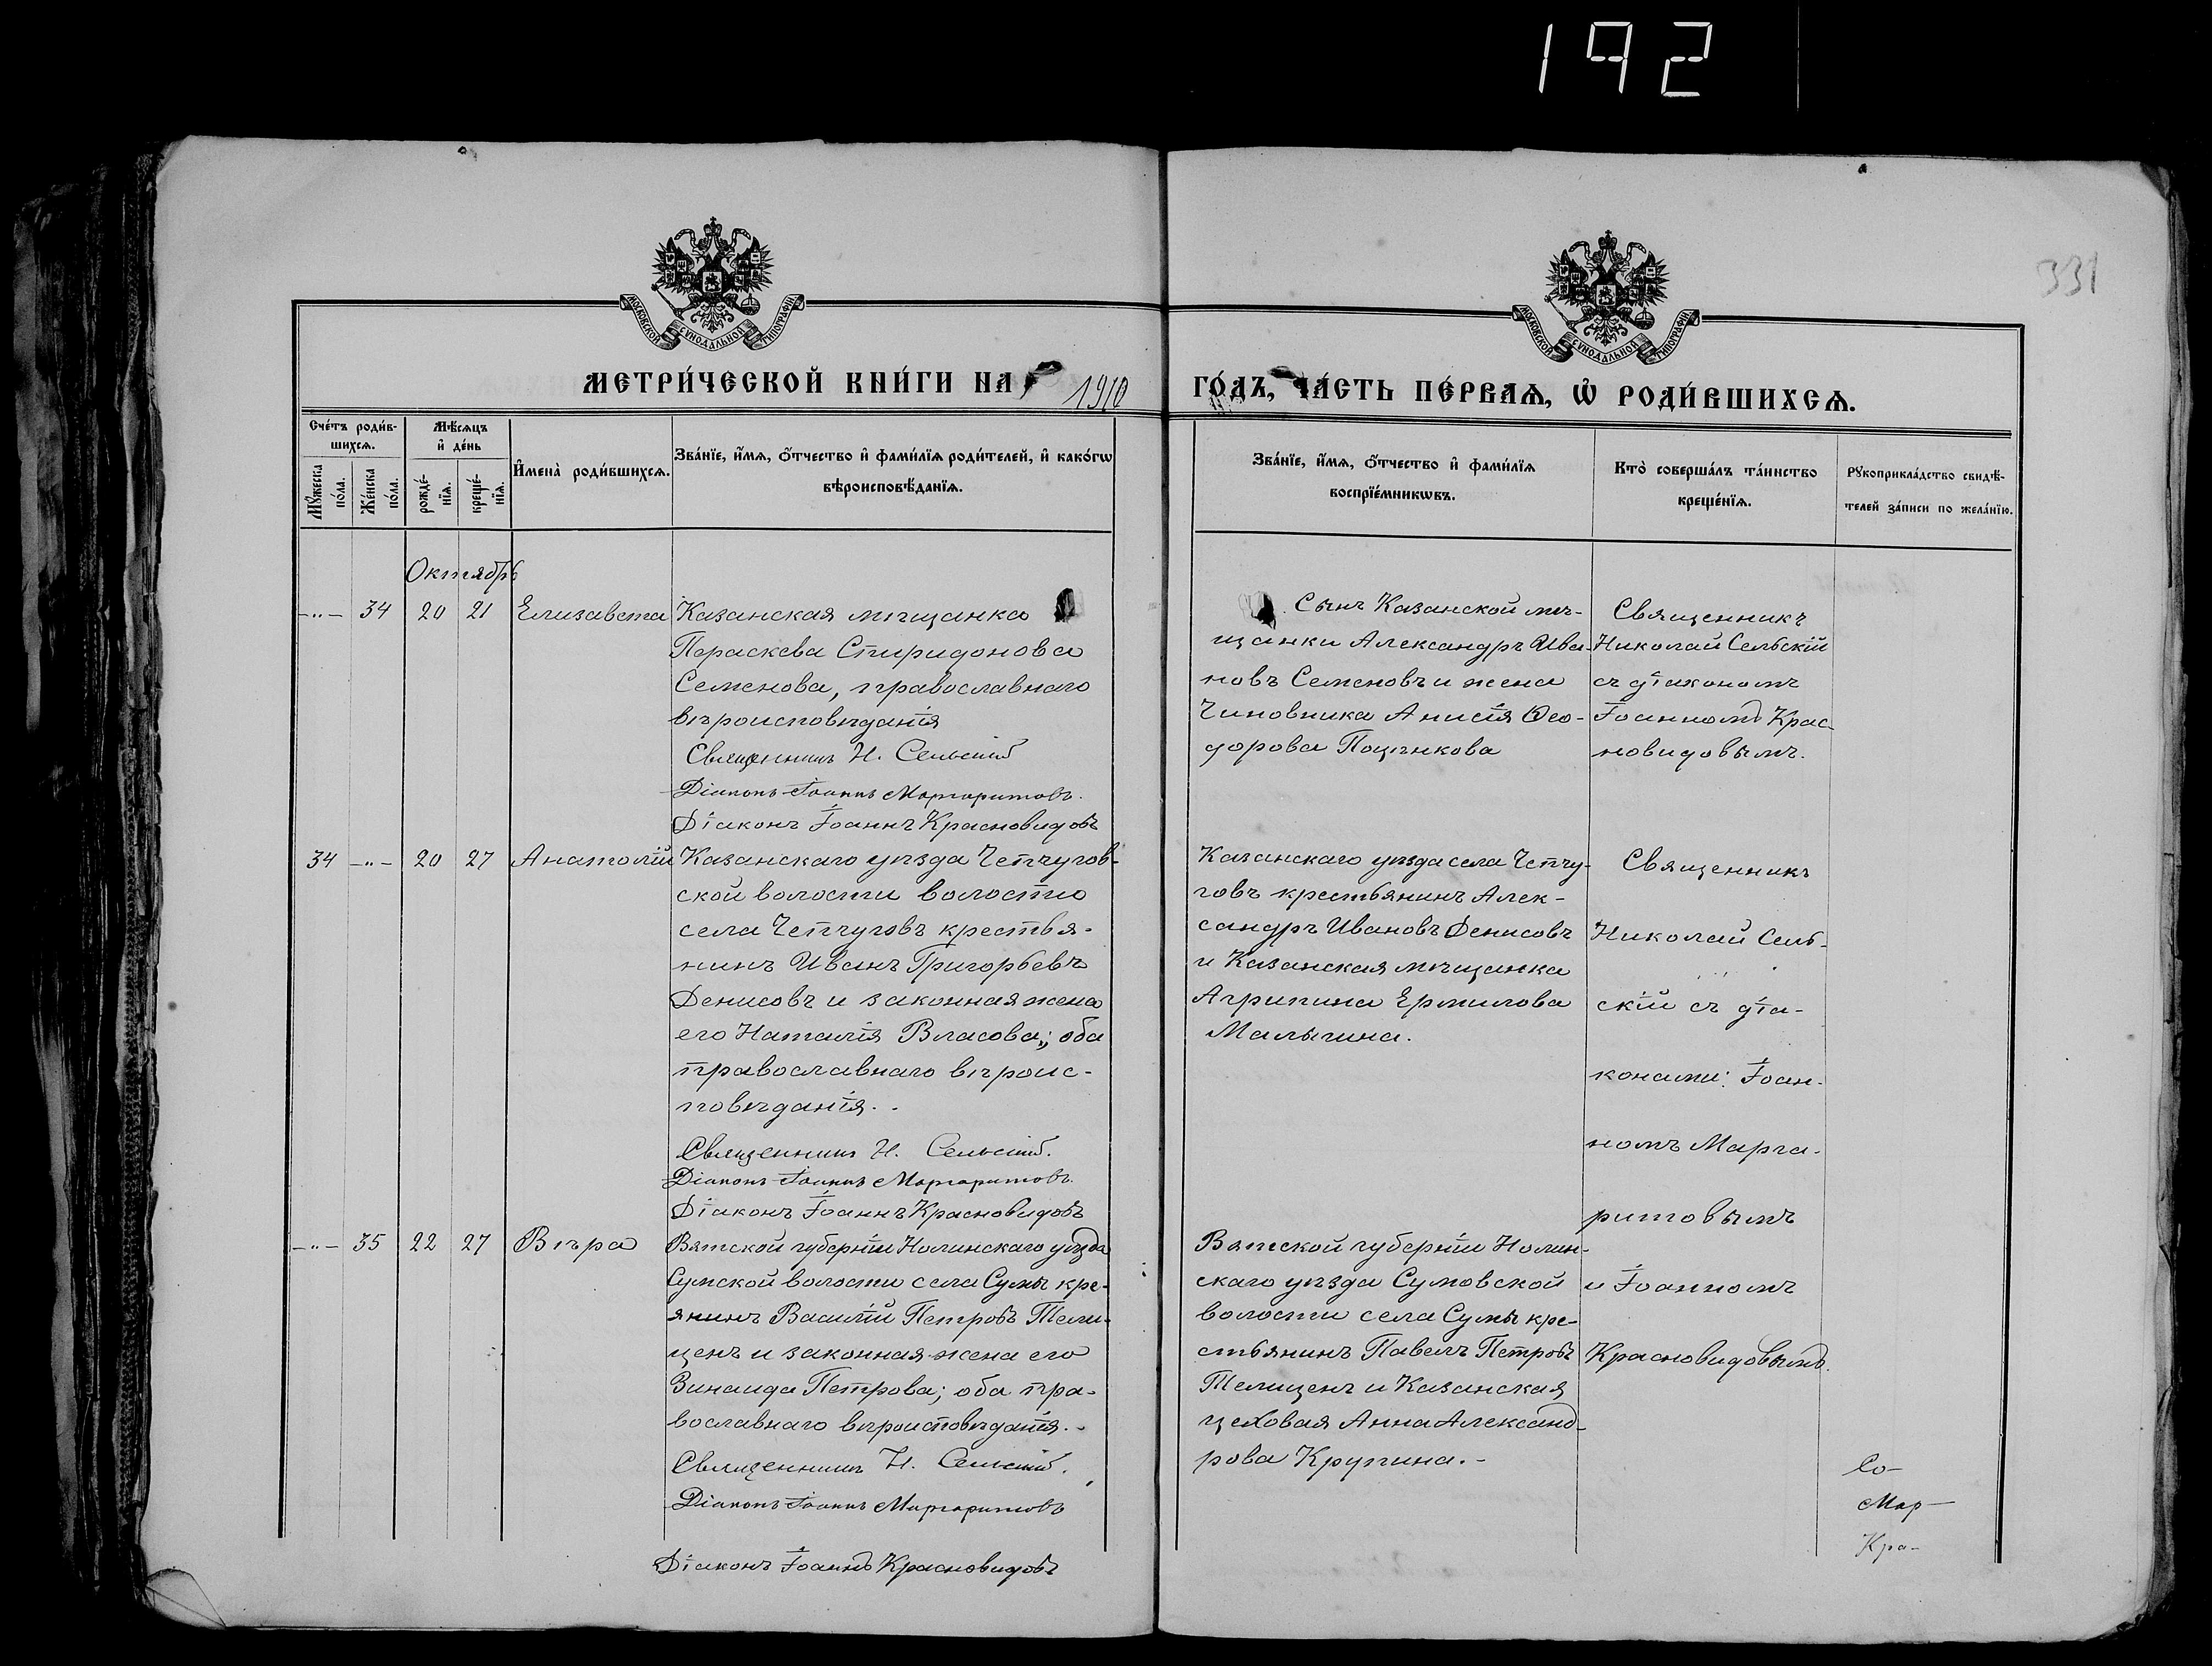 192
331
МОСКОВСКОЙ СѴНОДАЛЬНОЙ ТИПОГРАФІИ
МОСКОВСКОЙ СѴНОДАЛЬНОЙ ТИПОГРАФІИ
МЕТРИ́ЧЕСКОЙ КНИ́ГИ НА 1910
ГО́ДЪ, ЧА́СТЬ ПЕ́РВАѦ, Ѡ҆ РОДИ́ВШИХСѦ.
Сче́тъ роди́в-
шихсѧ.
Мꙋ́жеска
по́ла.
Же́нска
по́ла.
Мѣ́сѧцъ
и҆ де́нь
рожде́-
нїѧ.
креще́-
нїѧ.
И҆мена̀ роди́вшихсѧ.
Зва́нїе, и҆́мѧ, ѻ҆́тчество и҆ фами́лїѧ роди́телей, и҆ како́гѡ
вѣроисповѣ́данїѧ.
Зва́нїе, и҆́мѧ, ѻ҆́тчество и҆ фами́лїѧ
воспрїе́мникѡвъ.
Кто̀ соверша́лъ та́инство
креще́нїѧ.
Рꙋкоприкла́дство свидѣ́-
телей за́писи по жела́нїю.
Октябрь
-„- 34 20 21 Елизавета
Казанская мѣщанка
Параскева Спиридонова
Семенова, православнаго
вѣроисповѣданія
Священникъ Н. Сельскій
Діаконъ Іоаннъ Маргаритовъ.
Діаконъ Іоаннъ Красновидовъ
Сынъ Казанской мѣ-
щанки Александръ Ива-
новъ Семеновъ и жена
Чиновника Анисія Ѳео-
дорова Пацѣнкова
Священникъ
Николай Сельскій
съ діакономъ
Іоанномъ Крас-
новидовымъ.
34 -„- 20 27 Анатолій
Казанскаго уѣзда Чепчугов-
ской волости волостію
села Чепчуговъ крестья-
нинъ Иванъ Григорьевъ
Денисовъ и законная жена
его Наталія Власова; оба
православнаго вѣроис-
повѣданія.
Священникъ Н. Сельскій.
Діаконъ Іоаннъ Маргаритовъ.
Діаконъ Іоаннъ Красновидовъ
Казанскаго уѣзда села Чепчу-
говъ крестьянинъ Алек-
сандръ Ивановъ Денисовъ
и Казанская мѣщанка
Агрипина Ермилова
Малыгина.
Священникъ
Николай Сель-
скій съ діа-
конами: Іоан-
номъ Марга-
ритовымъ
и Іоанномъ
Красновидовымъ.
-„- 35 22 27 Вѣра
Вятской губерніи Нолинскаго уѣзда
Сумской волости села Сумы кре-
янинъ Василій Петровъ Тели-
ценъ и законная жена его
Зинаида Петрова; оба пра-
вославнаго вѣроисповѣданія.-
Священникъ Н. Сельскій.
Діаконъ Іоаннъ Маргаритовъ
Діаконъ Іоаннъ Красновидовъ
Вятской губерніи Нолин-
скаго уѣзда Сумовской
волости села Сумы кре-
стьянинъ Павелъ Петровъ
Телиценъ и Казанская
цеховая Анна Александ-
рова Крупина.-
Со-
Мар-
Кра-